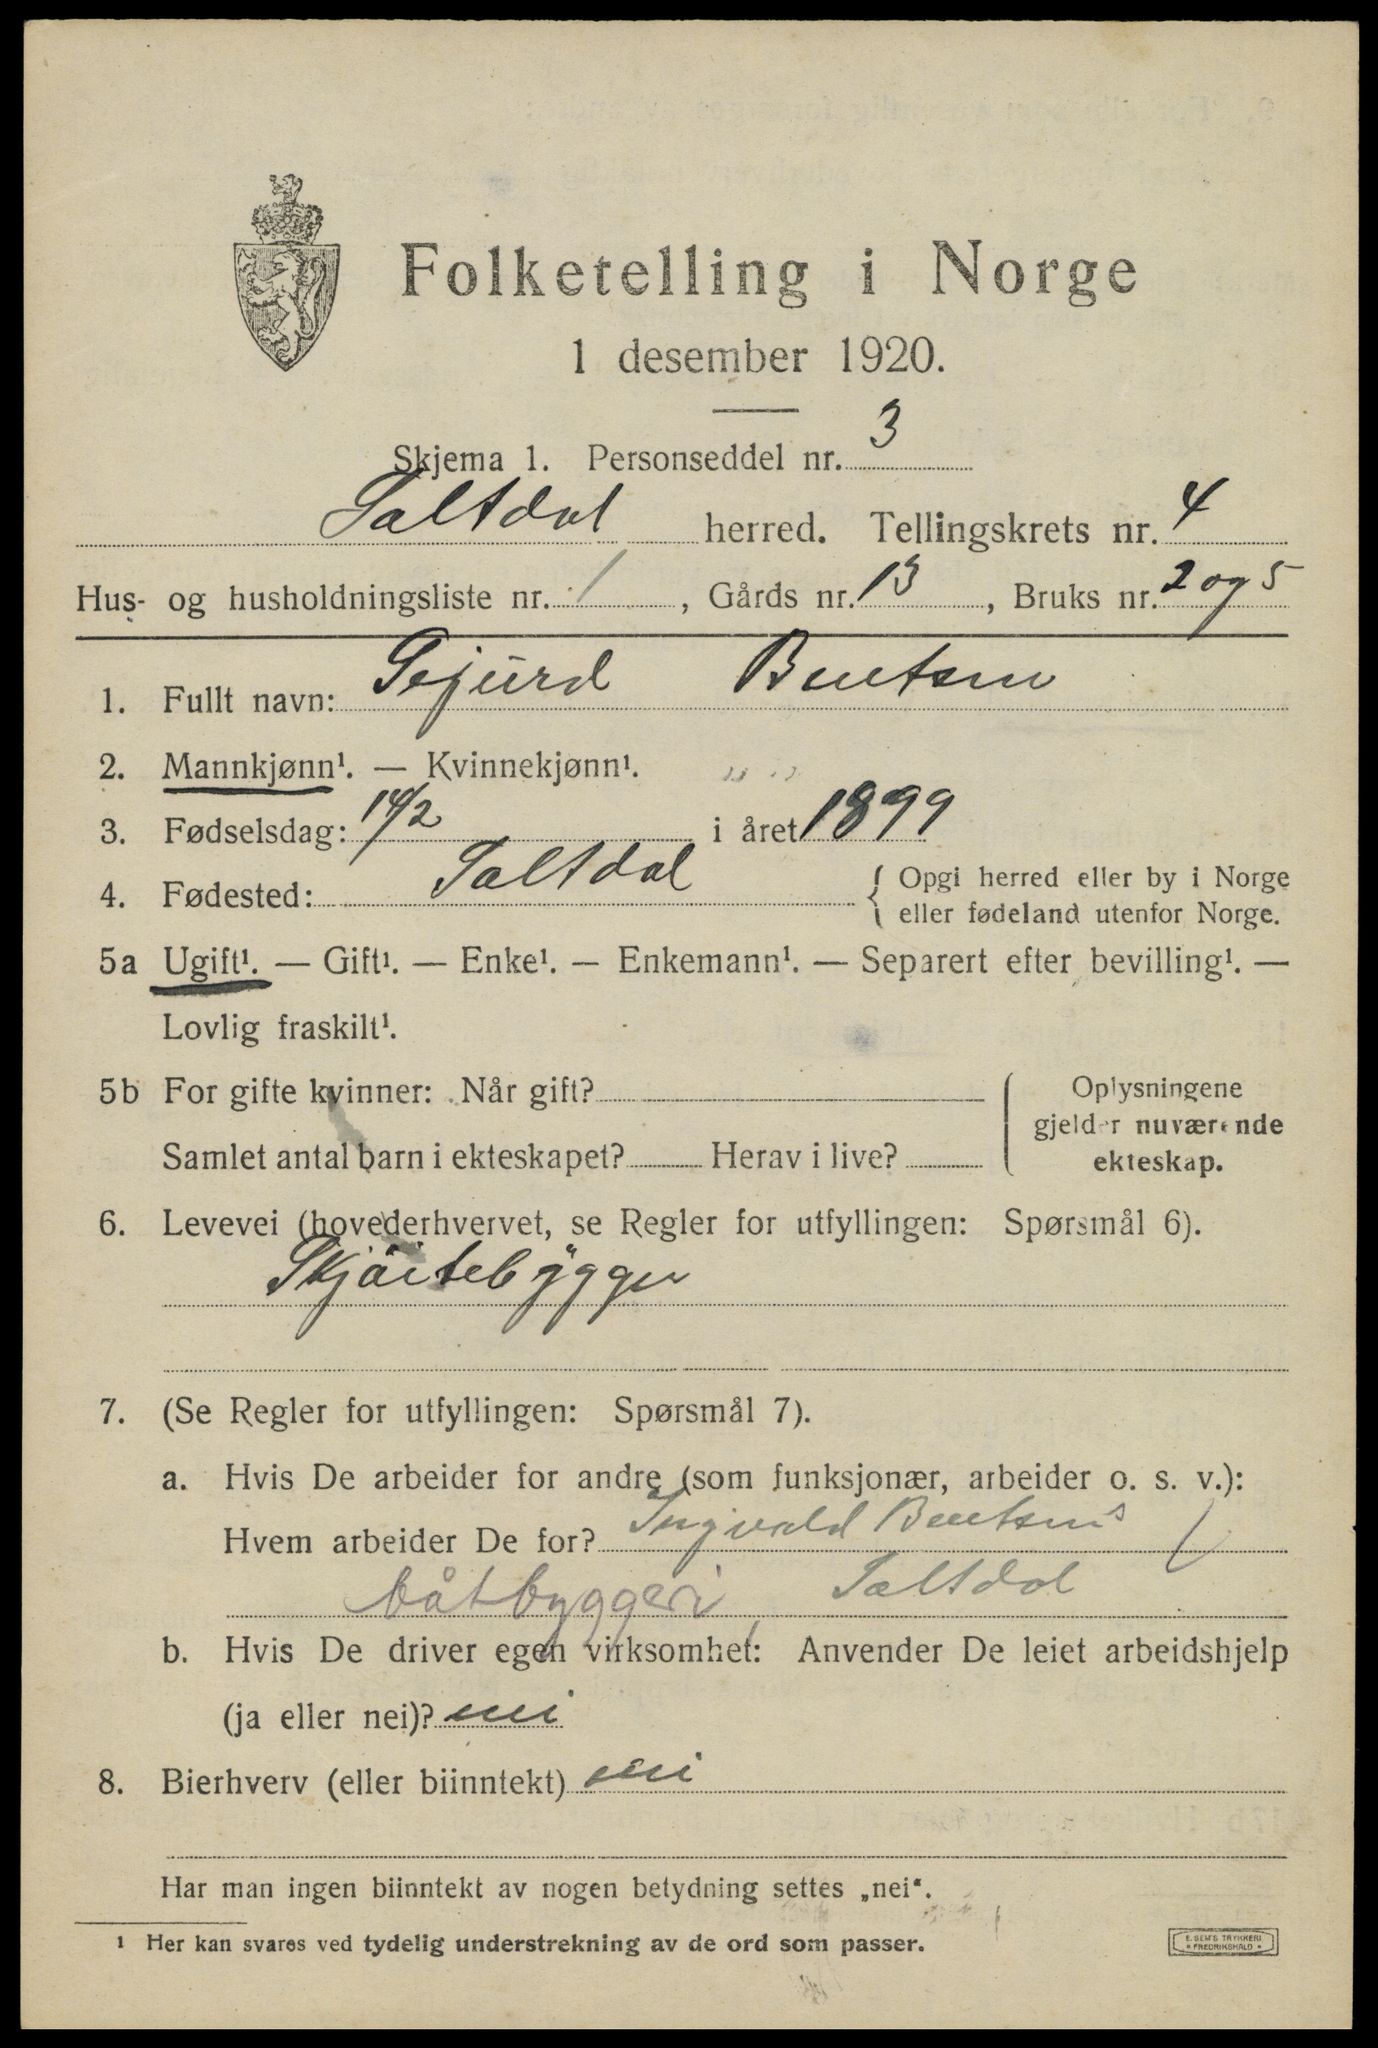 Folketelling i Norge
1 desember 1920.
Skjema 1. Personseddel nr. 3
Saltdal herred. Tellingskrets nr. 4
Hus- og husholdningsliste nr. 1, Gårds nr. 13, Bruks nr. 2 og 5
1. Fullt navn: Sejurd Bentsen
2. Mannkjønn¹. — Kvinnekjønn¹.
3. Fødselsdag: 14/2 i året 1899
4. Fødested: Saltdal { Opgi herred eller by i Norge
eller fødeland utenfor Norge.
5a Ugift¹. — Gift¹. — Enke¹. — Enkemann¹. — Separert efter bevilling¹. —
Lovlig fraskilt¹.
5b For gifte kvinner: Når gift? Oplysningene
gjelder nuværende
Samlet antal barn i ekteskapet? Herav i live? ekteskap.
6. Levevei (hovederhvervet, se Regler for utfyllingen: Spørsmål 6).
Skjøitebygger
7. (Se Regler for utfyllingen: Spørsmål 7).
a. Hvis De arbeider for andre (som funksjonær, arbeider o. s. v.):
Hvem arbeider De for? Ingvald Bentsens
båtbyggeri, Saltdal
b. Hvis De driver egen virksomhet: Anvender De leiet arbeidshjelp
(ja eller nei)? nei
8. Bierhverv (eller biinntekt) nei
Har man ingen biinntekt av nogen betydning settes „nei“.
¹ Her kan svares ved tydelig understrekning av de ord som passer.
E. SEM'S TRYKKERI
* FREDRIKSHALD *